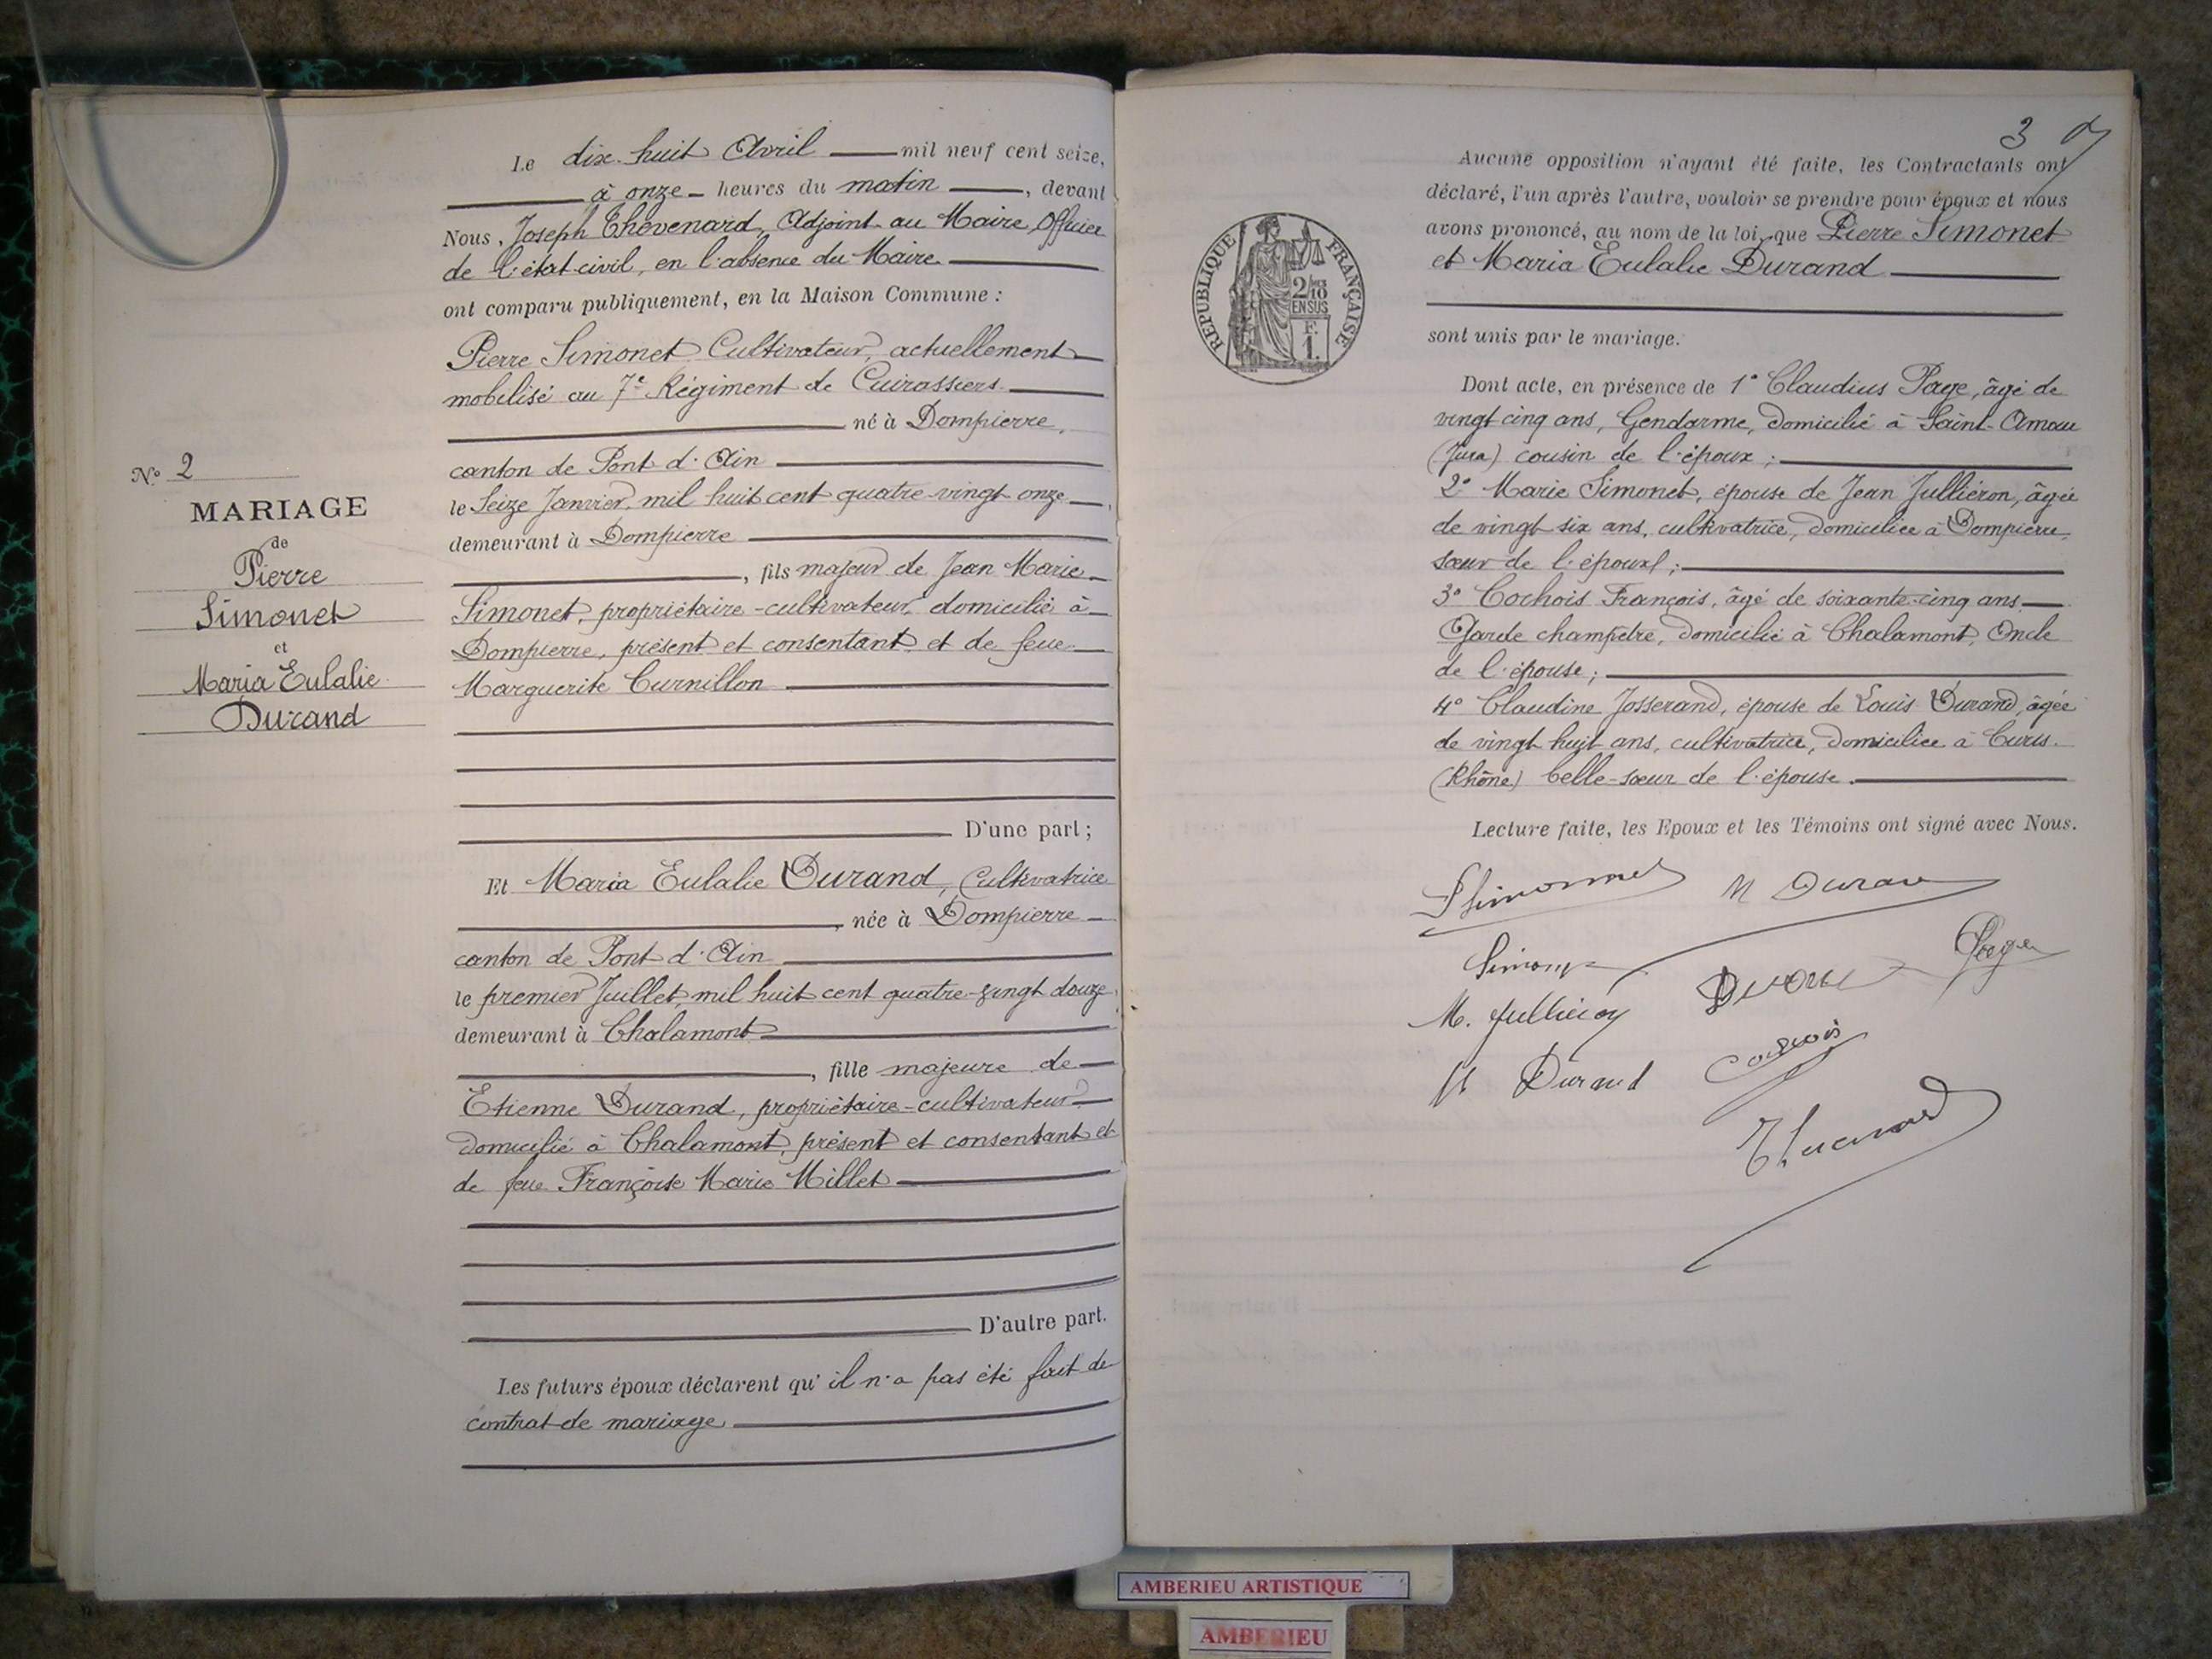 Le dix-huit Avril mil neuf cent seize,
à onze heures du matin, devant
Nous, Joseph Thévenard, Adjoint au Maire, Officier
de l'état-civil, en l'absence du Maire
ont comparu publiquement, en la Maison Commune :
Pierre Simonet Cultivateur, actuellement
mobilisé au 7e Régiment de Cuirassiers
né à Dompierre,
canton de Pont d'Ain
le Seize Janvier, mil huit cent quatre-vingt onze,
demeurant à Dompierre
, fils majeur de Jean Marie
Simonet, propriétaire-cultivateur, domicilié à
Dompierre, présent et consentant et de feue
Marguerite Curnillon
D'une part ;
Et Maria Eulalie Durand, Cultivatrice
, née à Dompierre
canton de Pont d'Ain
le premier Juillet, mil huit cent quatre-vingt douze,
demeurant à Chalamont
, fille majeure de
Etienne Durand, propriétaire-cultivateur
domicilié à Chalamont, présent et consentant et
de feue Françoise Marie Millet
D'autre part.
Les futurs époux déclarent qu'il n'a pas été fait de
contrat de mariage
No 2
MARIAGE
de
Pierre
Simonet
et
Maria Eulalie
Durand
3
Aucune opposition n'ayant été faite, les Contractants ont
déclaré, l'un après l'autre, vouloir se prendre pour époux et nous
avons prononcé, au nom de la loi, que Pierre Simonet
et Maria Eulalie Durand
sont unis par le mariage.
Dont acte, en présence de 1° Claudius Page, âgé de
vingt cinq ans, Gendarme, domicilié à Saint-Amour
(Jura) cousin de l'époux ;
2° Marie Simonet, épouse de Jean Julliéron, âgée
de vingt six ans, cultivatrice, domiciliée à Dompierre,
sœur de l'époux ;
3° Cochois François, âgé de soixante-cinq ans
Garde champêtre, domicilié à Chalamont, Oncle
de l'épouse ;
4° Claudine Josserand, épouse de Louis Durand, âgée
de vingt huit ans, cultivatrice, domiciliée à Curis
(Rhône) belle-sœur de l'épouse.
Lecture faite, les Epoux et les Témoins ont signé avec Nous.
REPUBLIQUE FRANÇAISE
2/10
EN SUS
F.
1.
P Simonet M Durand
Simonet Page
M. Julliéron Durand
Durand Cochois
Thévenard
AMBERIEU ARTISTIQUE
AMBERIEU